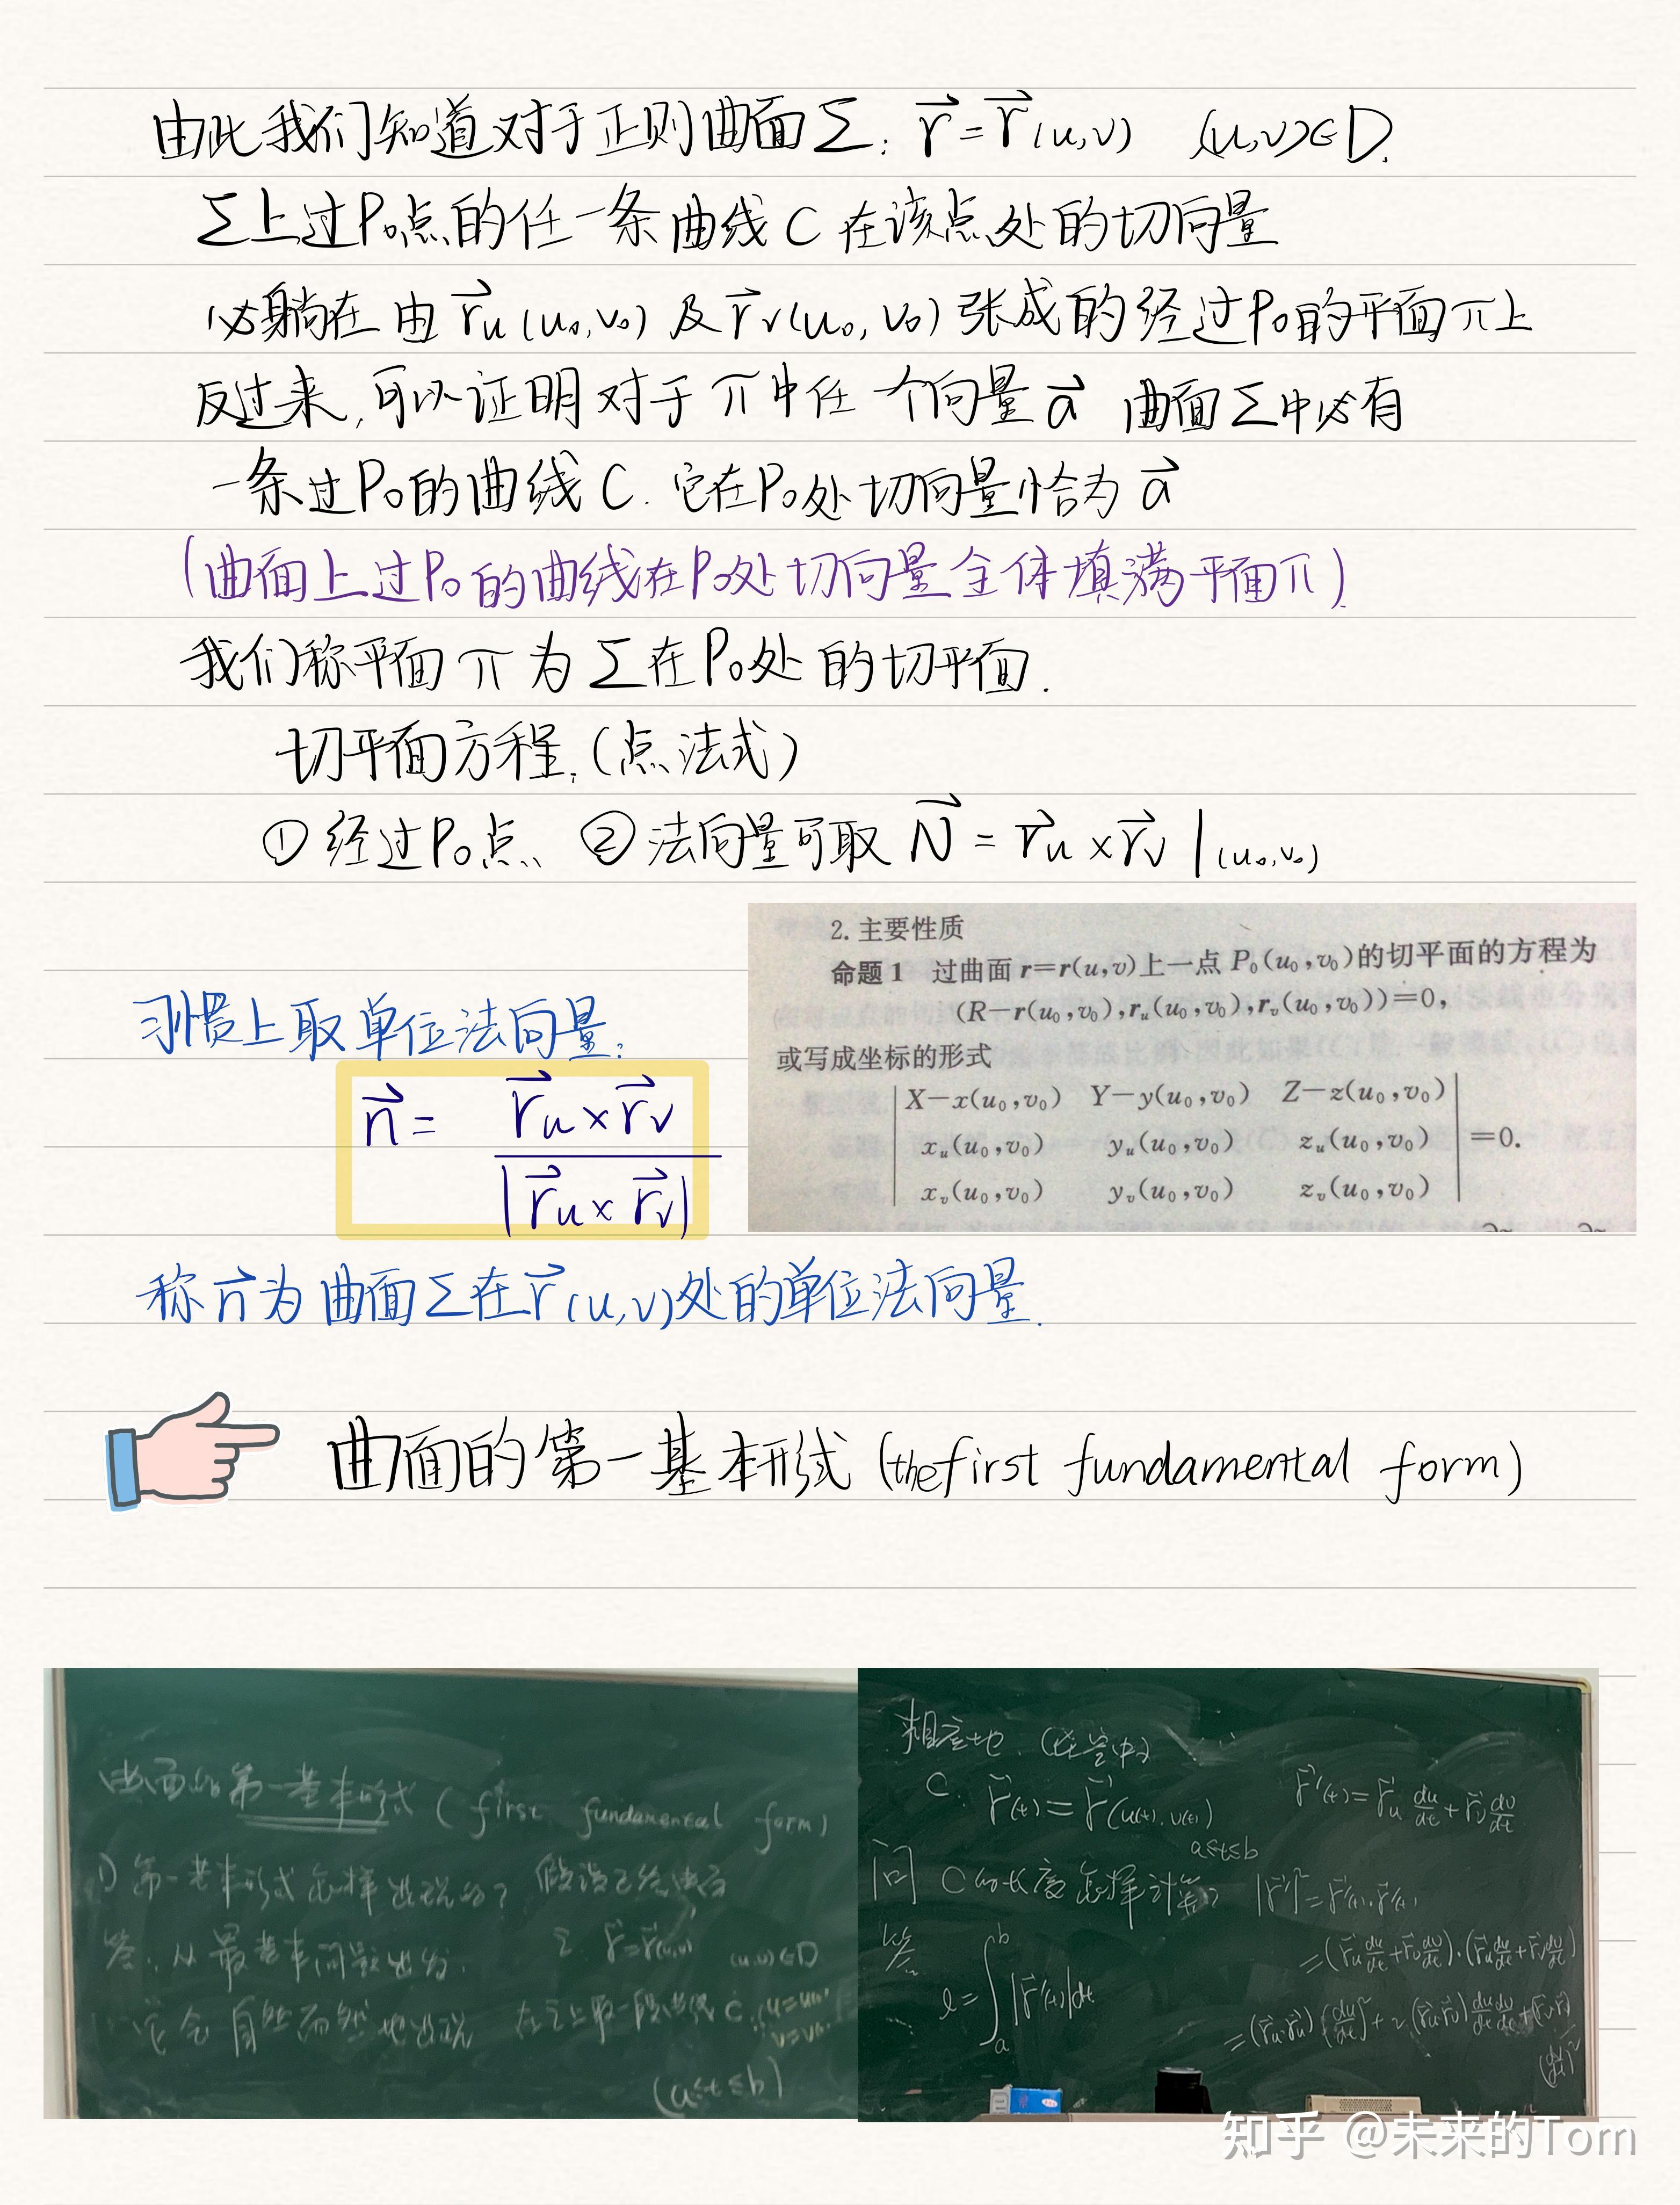 由此我们知道对于正则曲面Σ: r⃗=r⃗(u,v) (u,v)∈D.
Σ上过P₀点的任一条曲线C在该点处的切向量
必躺在由r⃗u(u₀,v₀)及r⃗v(u₀,v₀)张成的经过P₀的平面π上
反过来,可以证明对于π中任一个向量a⃗ 曲面Σ中必有
一条过P₀的曲线C.它在P₀处切向量恰为a⃗
(曲面上过P₀的曲线在P₀处切向量全体填满平面π)
我们称平面π为Σ在P₀处的切平面.
切平面方程:(点法式)
①经过P₀点、②法向量可取 N⃗=r⃗u×r⃗v|(u₀,v₀)
2. 主要性质
命题1 过曲面r=r(u,v)上一点P₀(u₀,v₀)的切平面的方程为
(R-r(u₀,v₀),rᵤ(u₀,v₀),rᵥ(u₀,v₀))=0,
或写成坐标的形式
| X-x(u₀,v₀) Y-y(u₀,v₀) Z-z(u₀,v₀) |
| xᵤ(u₀,v₀) yᵤ(u₀,v₀) zᵤ(u₀,v₀) | =0.
| xᵥ(u₀,v₀) yᵥ(u₀,v₀) zᵥ(u₀,v₀) |
习惯上取单位法向量:
n⃗= r⃗u×r⃗v
|r⃗u×r⃗v|
称n⃗为曲面Σ在r⃗(u,v)处的单位法向量.
曲面的第一基本形式(the first fundamental form)
曲面的第一基本形式(first fundamental form)
1)第一基本形式怎样出现的? 假设已给曲面
答:从最基本问题出发. Σ: r⃗=r⃗(u,v) (u,v)∈D
它会自然而然地出现 在Σ上取一段曲线C:
(a≤t≤b)
相应地.(在空中)
C: r⃗(t)=r⃗(u(t),v(t)) r⃗'(t)=r⃗u du/dt+r⃗v dv/dt
a≤t≤b
问 C的长度怎样计算? |r⃗'|²=r⃗'(t)·r⃗'(t)
答: =(r⃗u du/dt+r⃗v dv/dt)·(r⃗u du/dt+r⃗v dv/dt)
l=∫ₐᵇ|r⃗'(t)|dt
=(r⃗u·r⃗u)(du/dt)²+2(r⃗u·r⃗v)du/dt dv/dt+(r⃗v·r⃗v)
(dv/dt)²
知乎 @未来的Tom